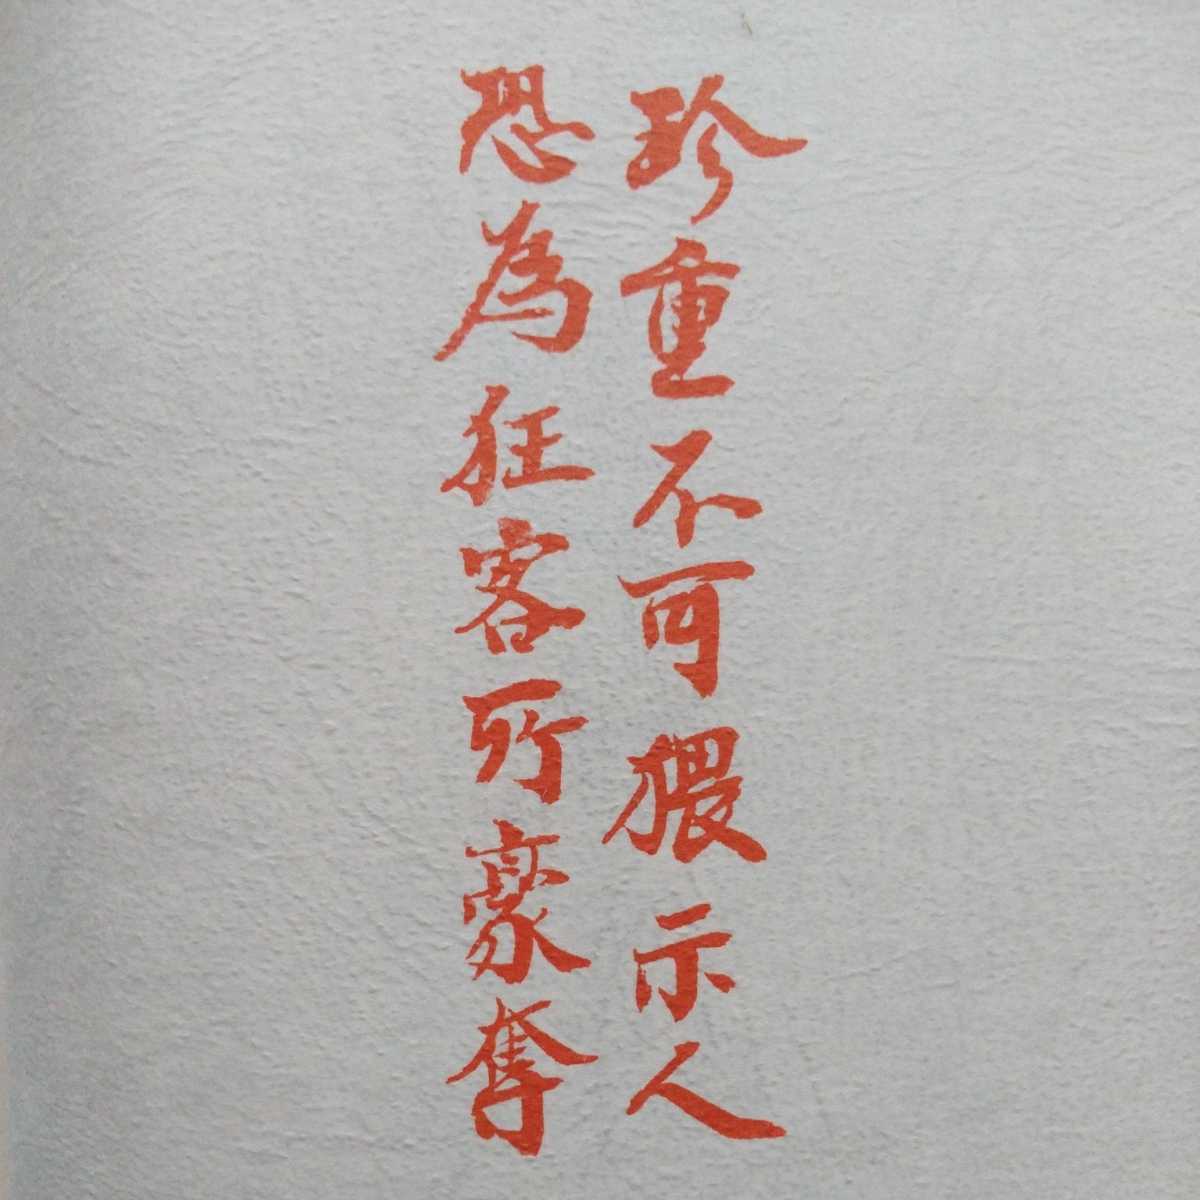 珍重不可猥示人
恐為狂客所豪奪